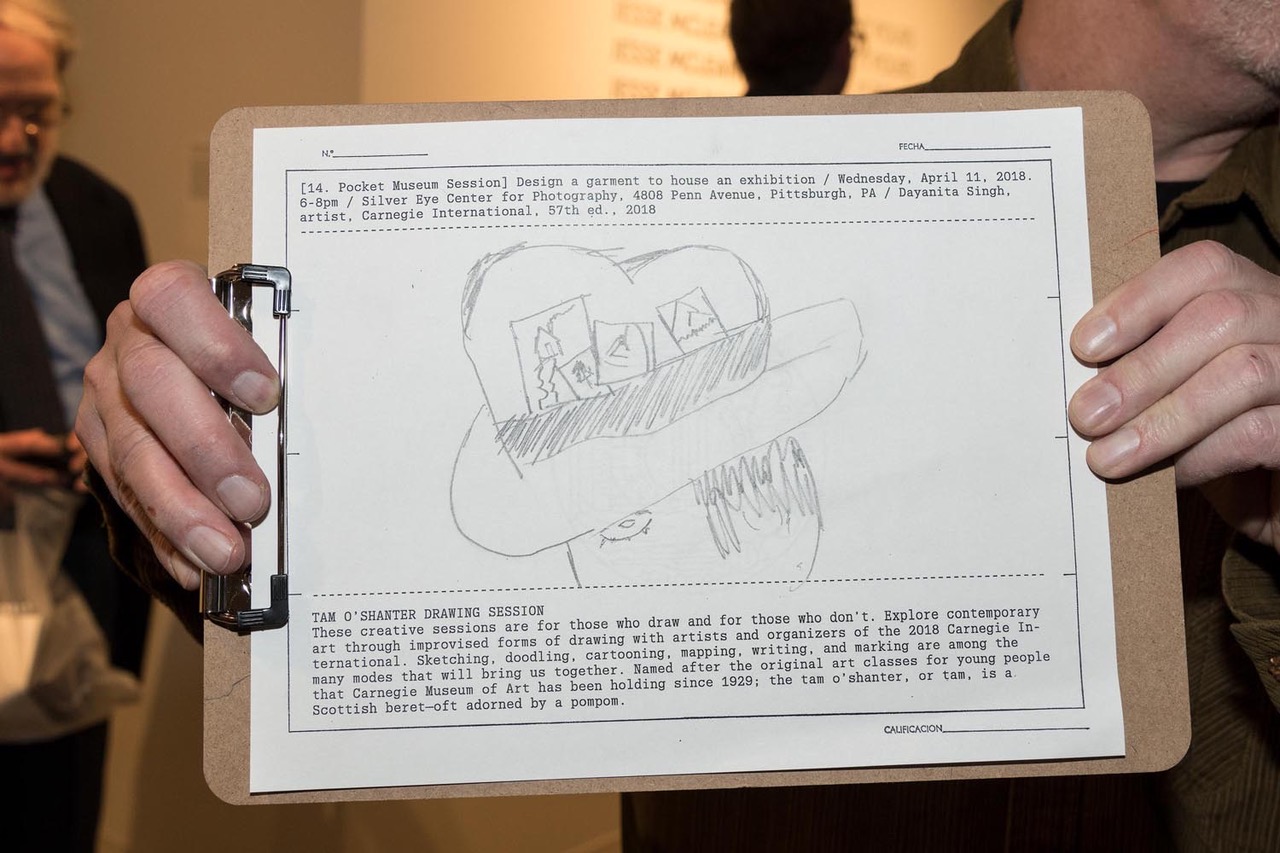 JESSE MCLEAN
N.º
FECHA
[14. Pocket Museum Session] Design a garment to house an exhibition / Wednesday, April 11, 2018.
6-8pm / Silver Eye Center for Photography, 4808 Penn Avenue, Pittsburgh, PA / Dayanita Singh,
artist, Carnegie International, 57th ed., 2018
TAM O'SHANTER DRAWING SESSION
These creative sessions are for those who draw and for those who don't. Explore contemporary
art through improvised forms of drawing with artists and organizers of the 2018 Carnegie In-
ternational. Sketching, doodling, cartooning, mapping, writing, and marking are among the
many modes that will bring us together. Named after the original art classes for young people
that Carnegie Museum of Art has been holding since 1929; the tam o'shanter, or tam, is a
Scottish beret—oft adorned by a pompom.
CALIFICACION